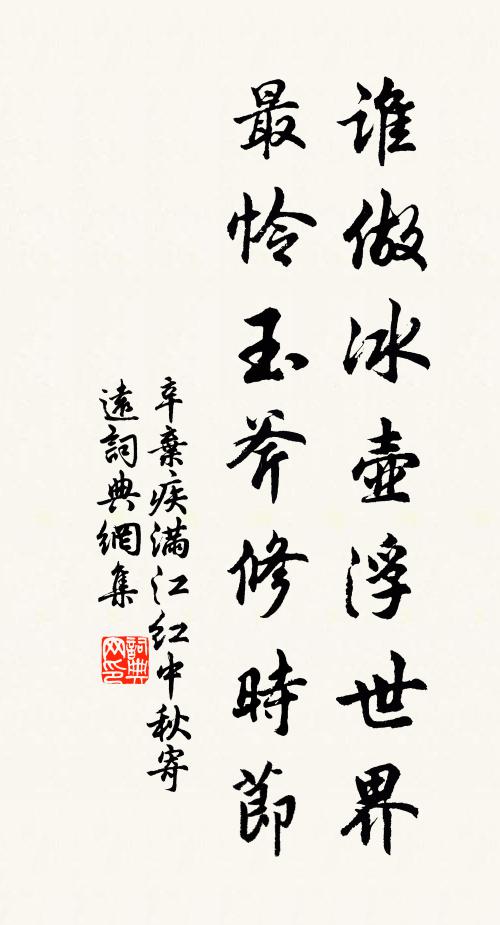 誰做冰壺浮世界
最憐玉斧修時節
辛棄疾滿江紅中秋寄
遠詞典網集
詞典網印